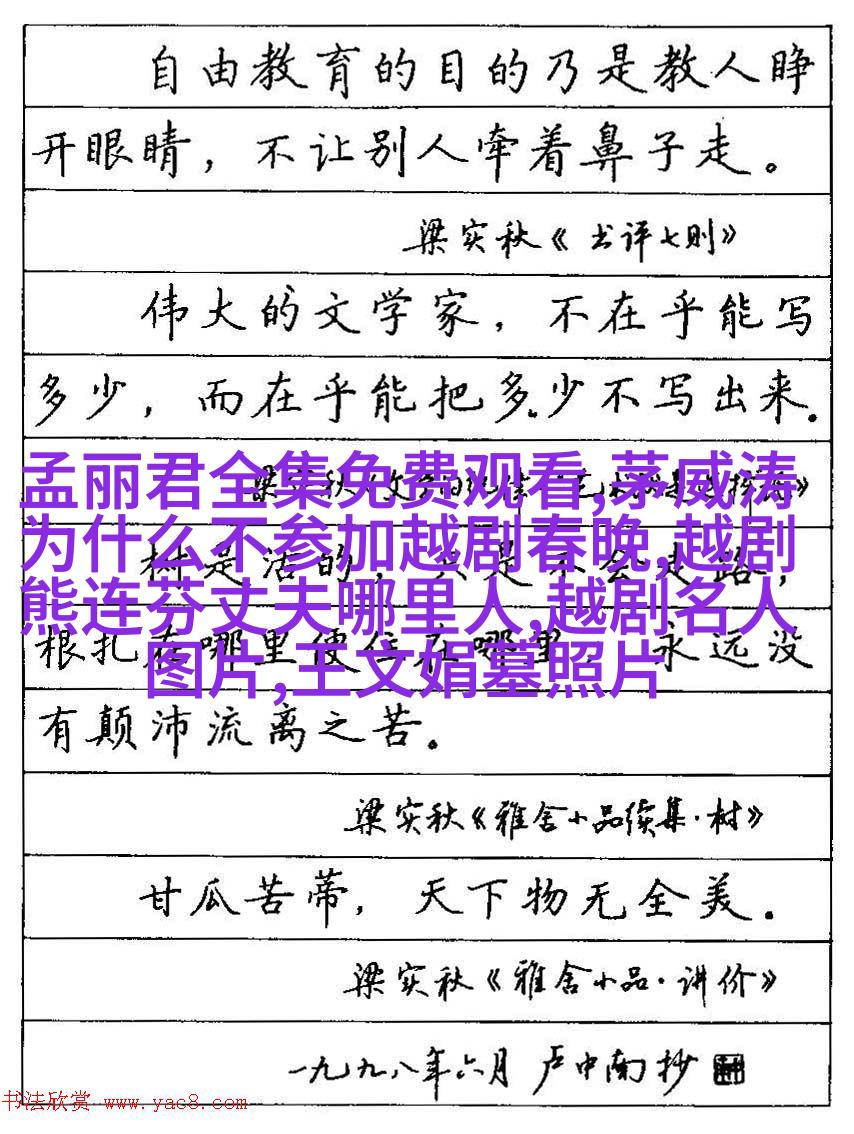 自由教育的目的乃是教人睁
开眼睛，不让别人牵着鼻子走。
梁实秋《书评七则》
伟大的文学家，不在乎能写
多少，而在乎能把多少不写出来。
孟丽君全集免费观看,茅威涛
为什么不参加越剧春晚,越剧
熊连芬丈夫哪里人,越剧名人
图片,王文娟墓照片
梁实秋《文
树是活的，只是不会走路，
根扎在哪里便住在哪里 永远没
有颠沛流离之苦。
梁实秋《雅舍小品续集·树》
甘瓜苦蒂，天下物无全美。
梁实秋《雅舍小品·讲价》
一九九八年六月 卢中南抄
书法欣赏 www.yac8.com